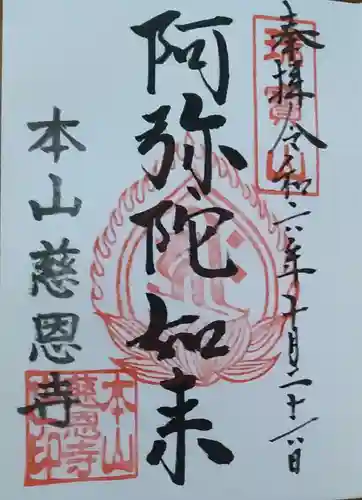 奉拝 令和六年十月二十六日
阿弥陀如来
本山慈恩寺
本山
慈恩寺